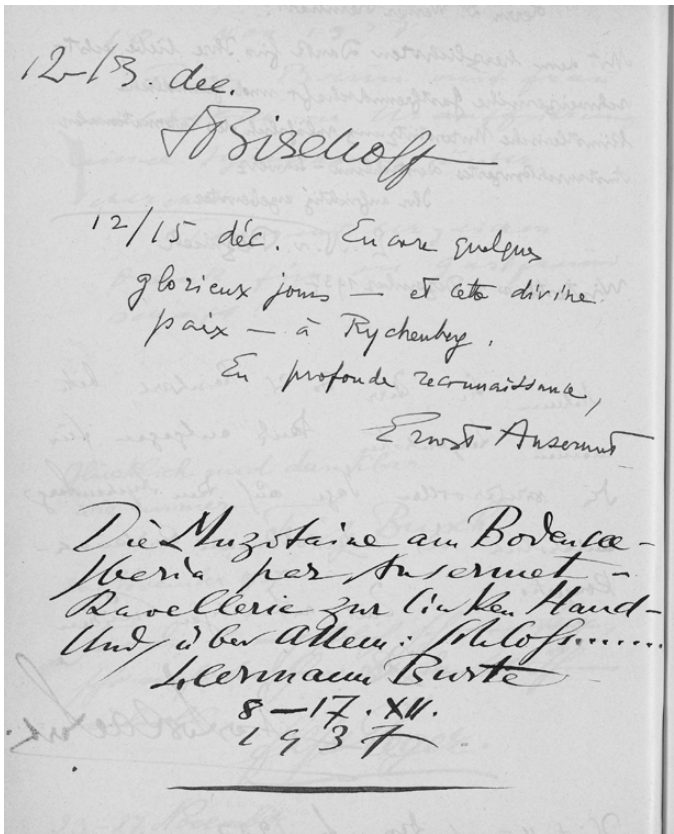 12-13. dec.
Bischoff
12/15 déc. Encore quelques
glorieux jours — et cette divine
paix — à Rychenberg.
En profonde reconnaissance,
Ernest Ansermet
Die Muzotaine am Bodensee -
Iberia par Ansermet -
Ravellerie zur linken Hand -
Und über Allem: Schloss......
Hermann Burte
8-17. XII.
1937